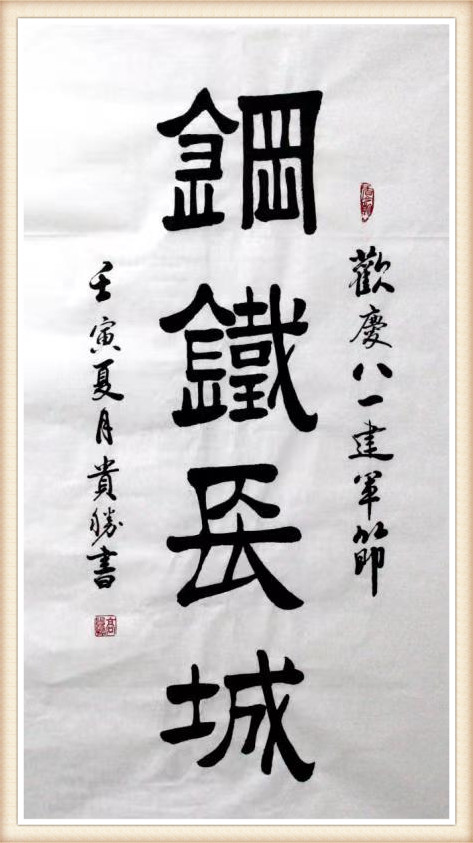 歡慶八一建軍節
鋼鐵長城
壬寅夏月貴勝書